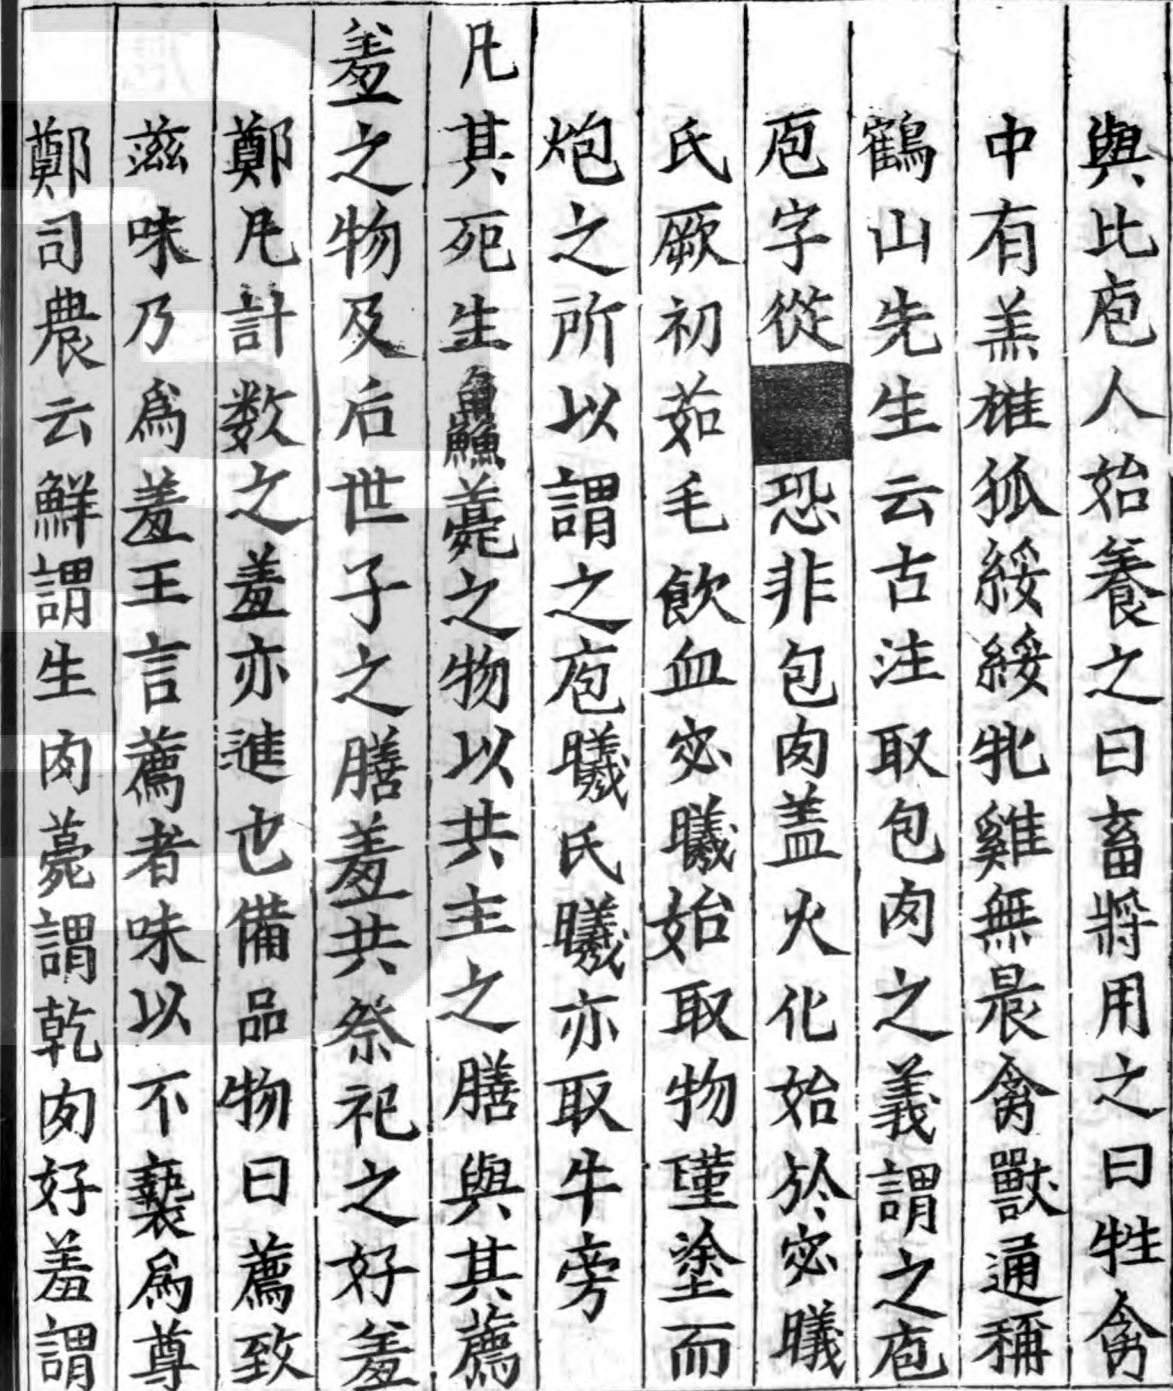 與比庖人始養之曰畜將用之曰牲禽
中有羔雄狐綏綏牝雞無晨禽獸通稱
鶴山先生云古注取包肉之義謂之庖
庖字從■恐非包肉盖火化始於宓曦
氏厥初茹毛飲血宓曦始取物墐塗而
炮之所以謂之庖曦氏曦亦取牛旁
凡其死生鱻薧之物以共主之膳與其薦
羞之物及后世子之膳羞共祭祀之好羞
鄭凡計数之羞亦進也備品物曰薦致
滋味乃為羞王言薦者味以不褻為尊
鄭司農云鮮謂生肉薧謂乾肉好羞謂